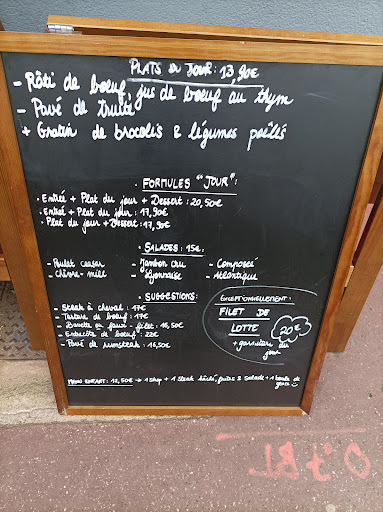 PLATS DU JOUR : 13,90€
- Rôti de boeuf, jus de boeuf au thym
- Pavé de truite
+ Gratin de brocolis & légumes poêlés
. FORMULES "JOUR" :
. Entrée + Plat du jour + Dessert : 20,50€
. Entrée + Plat du jour : 17,90€
. Plat du jour + Dessert : 17,90€
. SALADES : 15€ .
- Poulet caesar - Jambon cru - Composée
- Chèvre - miel - Lyonnaise - Atlantique
. SUGGESTIONS :
- Steak à cheval : 17€
- Tartare de boeuf : 17€
- Bavette ou faux - filet : 16,50€
- Entrecôte de boeuf : 22€
- Pavé de rumsteak : 16,50€
EXCEPTIONNELLEMENT :
FILET DE
LOTTE 20€
+ garniture du
jour
MENU ENFANT : 12,50€ → 1 Sirop + 1 Steak hâché, frites & salade + 1 boule de
glace